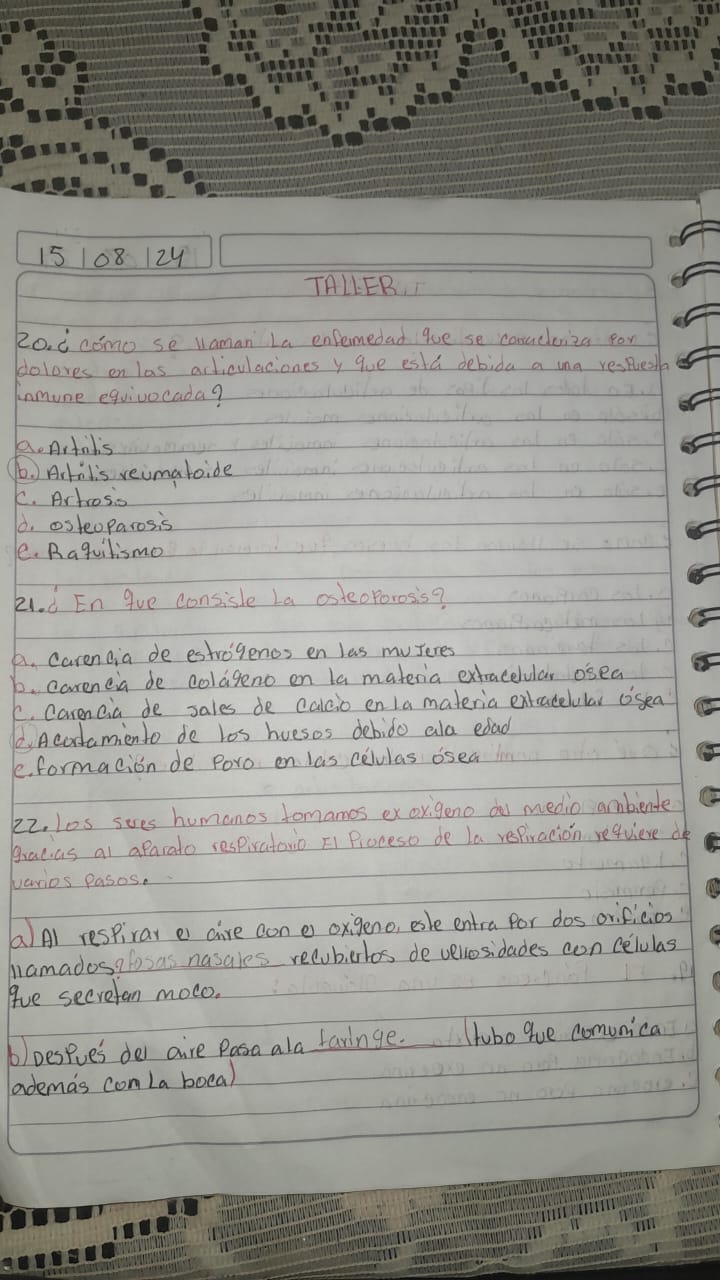 15/08/24
TALLER
20.¿ cómo se llaman La enfemedad que se caracteriza por
dolores en las articulaciones y que está debida a una respuesta
inmune equivocada?
a. Artritis
b. Artitis reumatoide
c. Artrosis
d. osteoparosis
e. Raquitismo
21.¿ En que consiste La osteoporosis?
a. carencia de estrógenos en las mujeres
b. carencia de colágeno en la materia extracelular ósea
c. Carencia de sales de calcio en la materia extracelular ósea
d. Acortamiento de los huesos debido ala edad
e. formación de poro en las células ósea
22. los seres humanos tomamos ex oxígeno del medio ambiente
gracias al aparato respiratorio El Proceso de la respiración requiere de
varios pasos.
a) Al respirar el aire con el oxígeno, este entra por dos orificios
llamados fosas nasales recubiertos de vellosidades con células
que secretan moco.
b) Después del aire pasa ala faringe. (tubo que comunica
además com La boca)